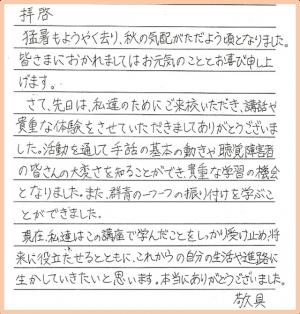 拝啓
猛暑もようやく去り、秋の気配がただよう頃となりました。
皆さまにおかれましてはお元気のこととお喜び申し上
げます。
さて、先日は、私達のためにご来校いただき、講話や
貴重な体験をさせていただきましてありがとうございま
した。活動を通して手話の基本の動きや聴覚障害者
の皆さんの大変さを知ることができ、貴重な学習の機会
となりました。また、群青の一つ一つの振り付けを学ぶこ
とができました。
現在、私達はこの講座で学んだことをしっかり受け止め、将
来に役立たせるとともに、これからの自分の生活や進路に
生かしていきたいと思います。本当にありがとうございました。
敬具